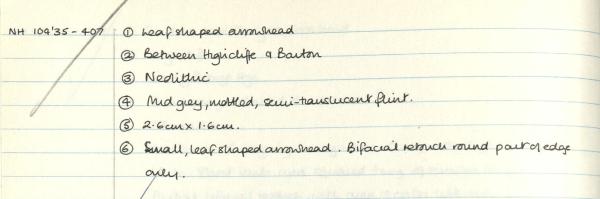 NH 104'35-407 ① Leaf shaped arrowhead
② Between Highcliffe & Barton
③ Neolithic
④ Mid grey, mottled, semi-translucent flint.
⑤ 2.6cm x 1.6cm.
⑥ Small, leaf shaped arrowhead. Bifacial retouch round part of edge
only.